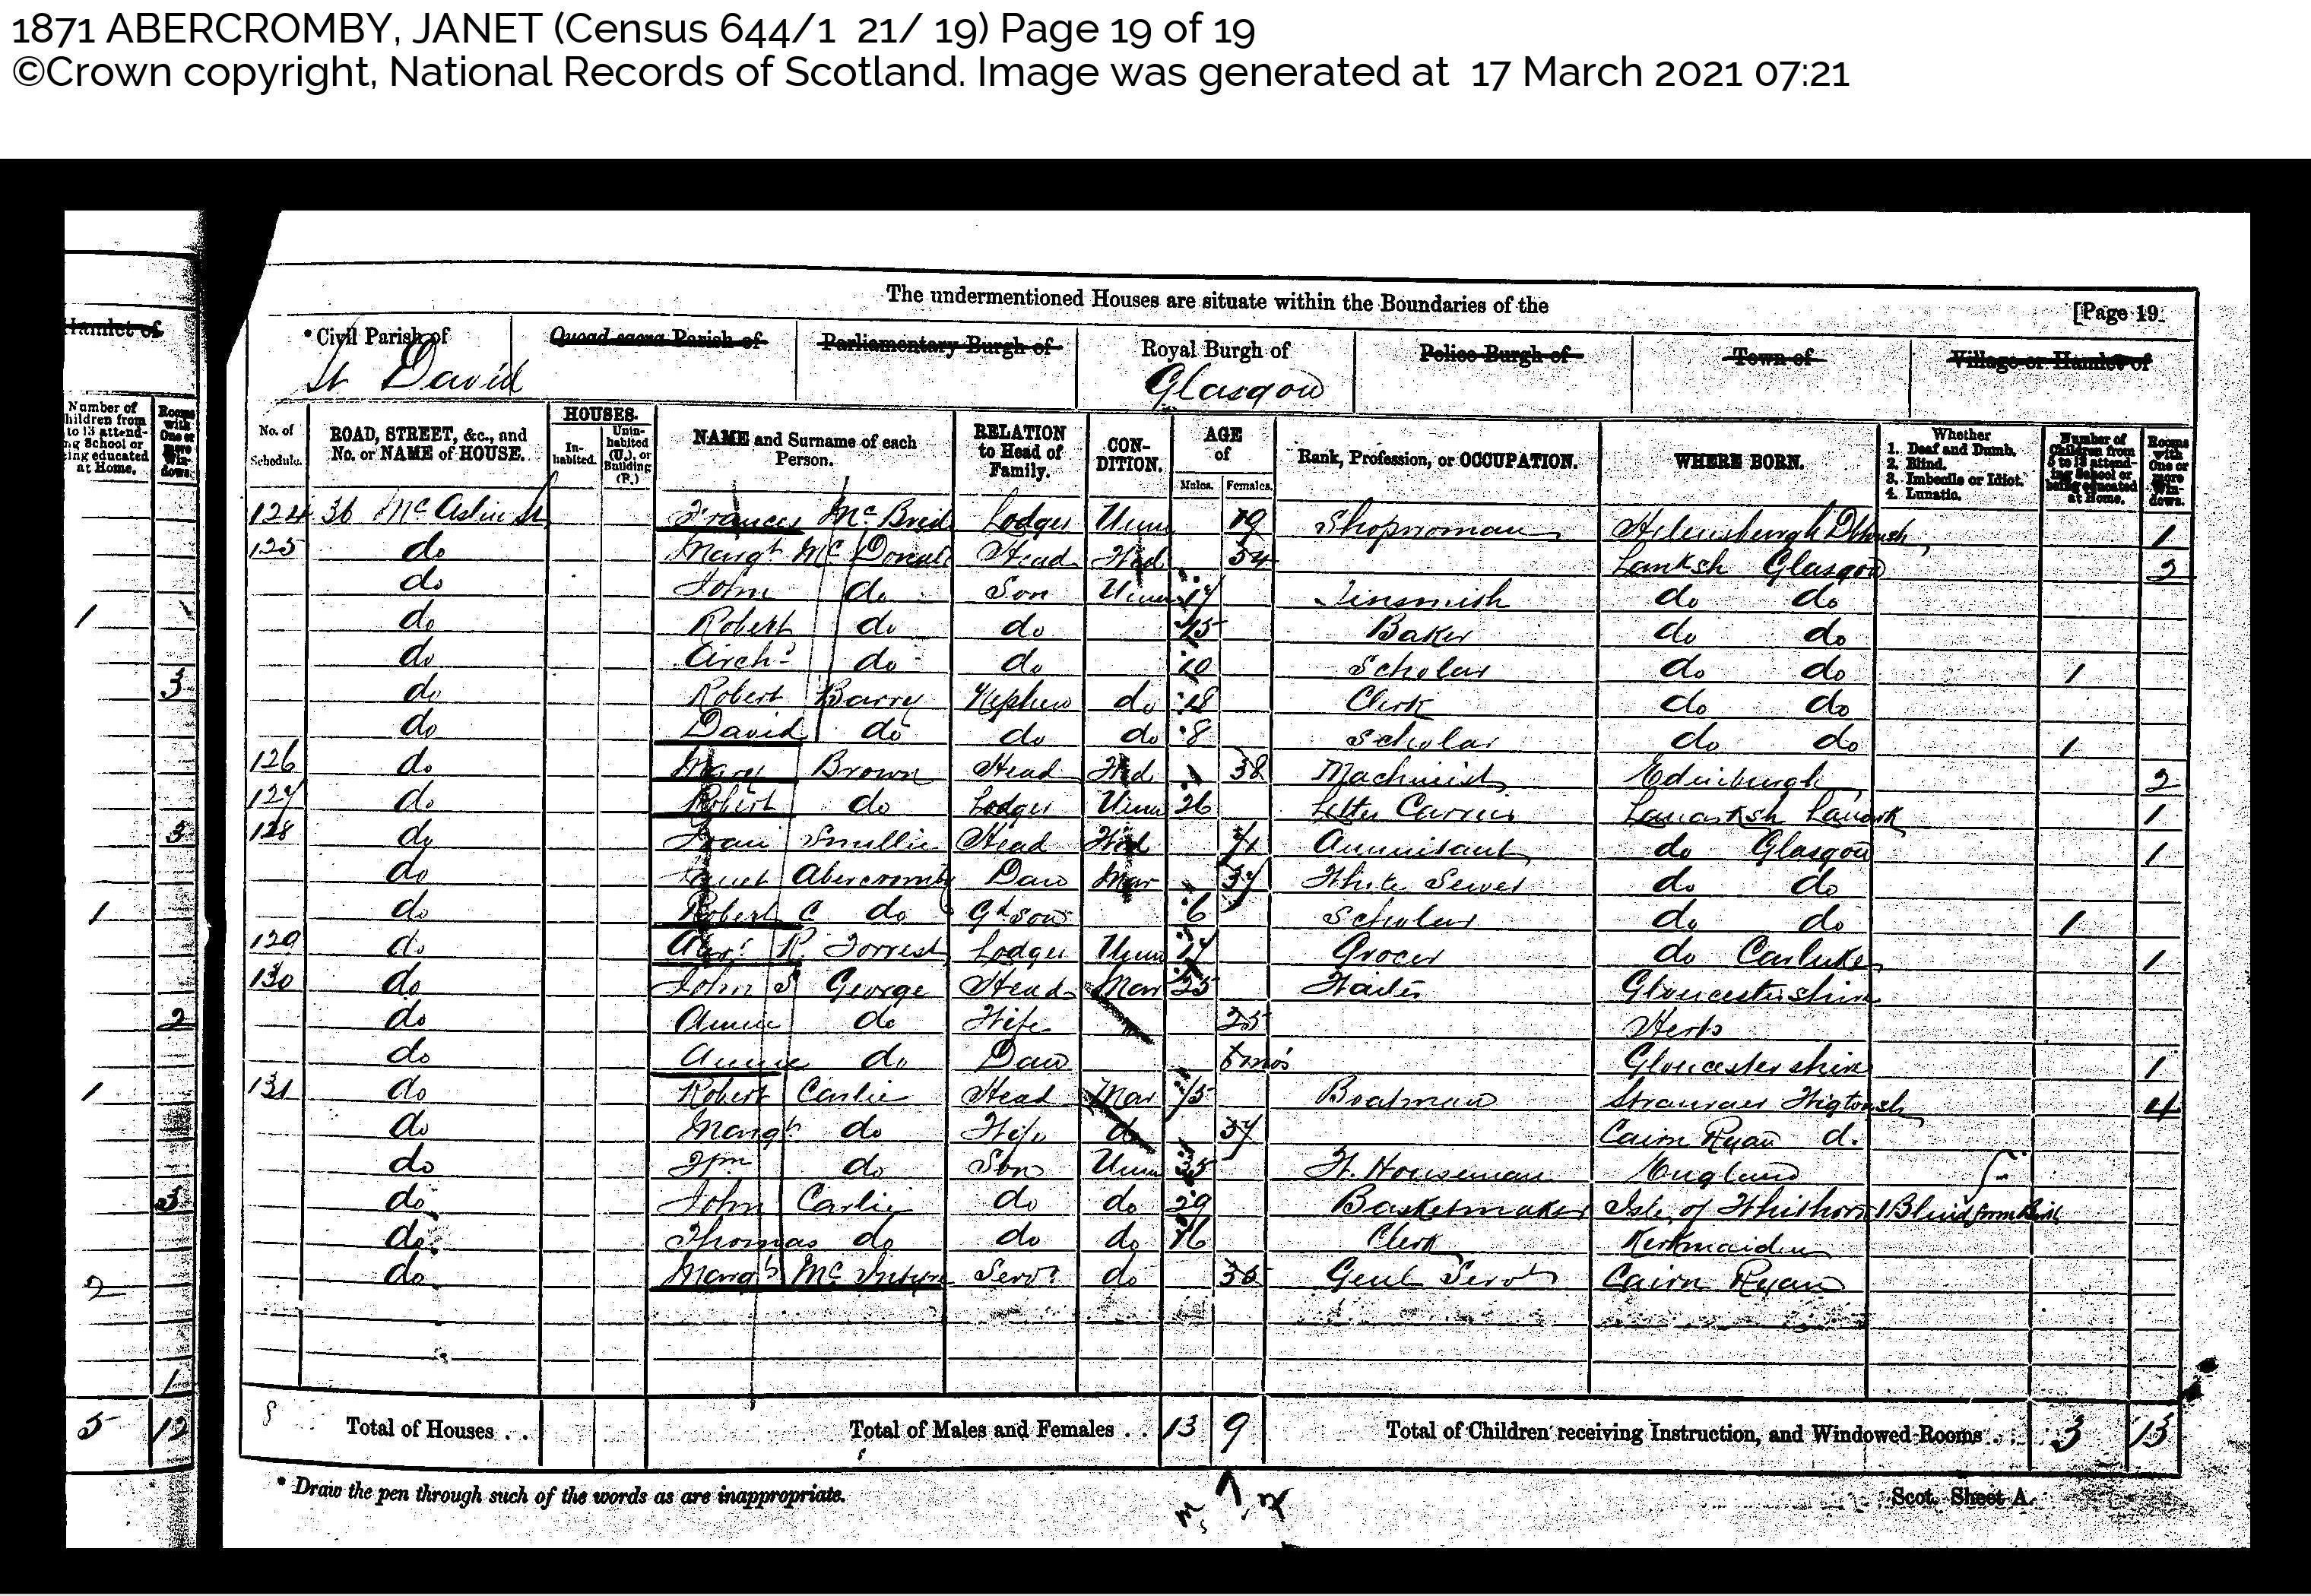 1871 ABERCROMBY, JANET (Census 644/1 21/ 19) Page 19 of 19
©Crown copyright, National Records of Scotland. Image was generated at 17 March 2021 07:21
The undermentioned Houses are situate within the Boundaries of the
[Page 19
Hamlet of
* Civil Parish of Quoad sacra Parish of Parliamentary Burgh of Royal Burgh of Police Burgh of Town of Village or Hamlet of
St David Glasgow
Number of Children from 5 to 13 attending School or being educated at Home. Rooms with One or more Windows.
No. of Schedule. ROAD, STREET, &c., and No. or NAME of HOUSE. HOUSES. Inhabited. Uninhabited (U.), or Building (B.) NAME and Surname of each Person. RELATION to Head of Family. CONDITION. AGE of Males. Females. Rank, Profession, or OCCUPATION. WHERE BORN. Whether 1. Deaf and Dumb. 2. Blind. 3. Imbecile or Idiot. 4. Lunatic. Number of Children from 5 to 13 attending School or being educated at Home. Rooms with One or more Windows.
124 36 McAslin St Frances McBrid Lodger Unm 19 Shopwoman Helensburgh 1
125 do Margt McDonald Head Wid 54 Lanksh Glasgow 2
do John do Son Unm 17 Tinsmith do do
do Robert do do 15 Baker do do
do Archd do do 10 Scholar do do 1
do Robert Barry Nephew do 18 Clerk do do
do David do do do 8 Scholar do do 1
126 do Mary Brown Head Wid 38 Machinist Edinburgh 2
127 do Robert do Lodger Unm 26 Letter Carrier Lanarksh Lanark 1
128 do Smellie Head Wid 71 Annuitant do Glasgow 1
do Janet Abercromby Daur Mar 37 White Sewer do do
do Robert C do Gd Son 6 Scholar do do 1
129 do Alexr R. Forrest Lodger Unm 17 Grocer do Carluke 1
130 do John S George Head Mar 25 Waiter Gloucestershire
do Annie do Wife 25 Herts
do Annie do Daur mos Gloucestershire 1
131 do Robert Carlie Head Mar Boatman Stranraer Wigtonsh 4
do Margt do Wife do 57 Cairn Ryan d.
do Wm do Son Unm 35 W. Houseman England
do John Carlie do do 29 Basketmaker Isle of Whithorn 1 Blind from Birth
do Thomas do do do 16 Clerk Kirkmaiden
do Margt McIntyre Servt do 36 Genl Servt Cairn Ryan
Total of Houses . . Total of Males and Females . . 13 9 Total of Children receiving Instruction, and Windowed Rooms . . 3 13
* Draw the pen through such of the words as are inappropriate.
Scot. Sheet A.
1
3
3
1
2
1
3
2
1
5 12